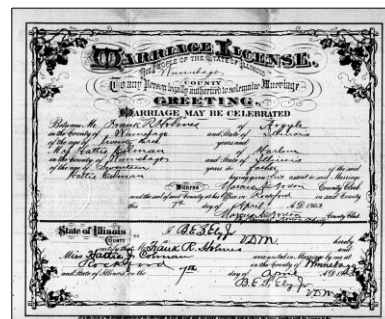 MARRIAGE LICENSE.
THE PEOPLE OF THE STATE OF ILLINOIS
Winnebago COUNTY
To any Person legally authorized to solemnize Marriage
GREETING.
MARRIAGE MAY BE CELEBRATED
Between Mr. Frank R. Holmes of Argyle
in the County of Winnebago and State of Illinois
of the age of Twenty three years and
M Hattie Colman of Harlem
in the County of Winnebago and State of Illinois
of the age of Seventeen years the father of the said
Hattie Colman having given his assent to said Marriage
Witness County Clerk
and the seal of said County at his Office in Rockford in said County
this 7th day of April A.D. 1903
County Clerk
State of Illinois
COUNTY I B.E.S. Ely Jr. a V.D.M. hereby
certify that Mr. Frank R. Holmes and
Miss Hattie J. Colman were united in Marriage by me at
Rockford in the County of Winnebago
and State of Illinois on the 7th day of April A.D. 1903
B.E.S. Ely Jr.
V.D.M.